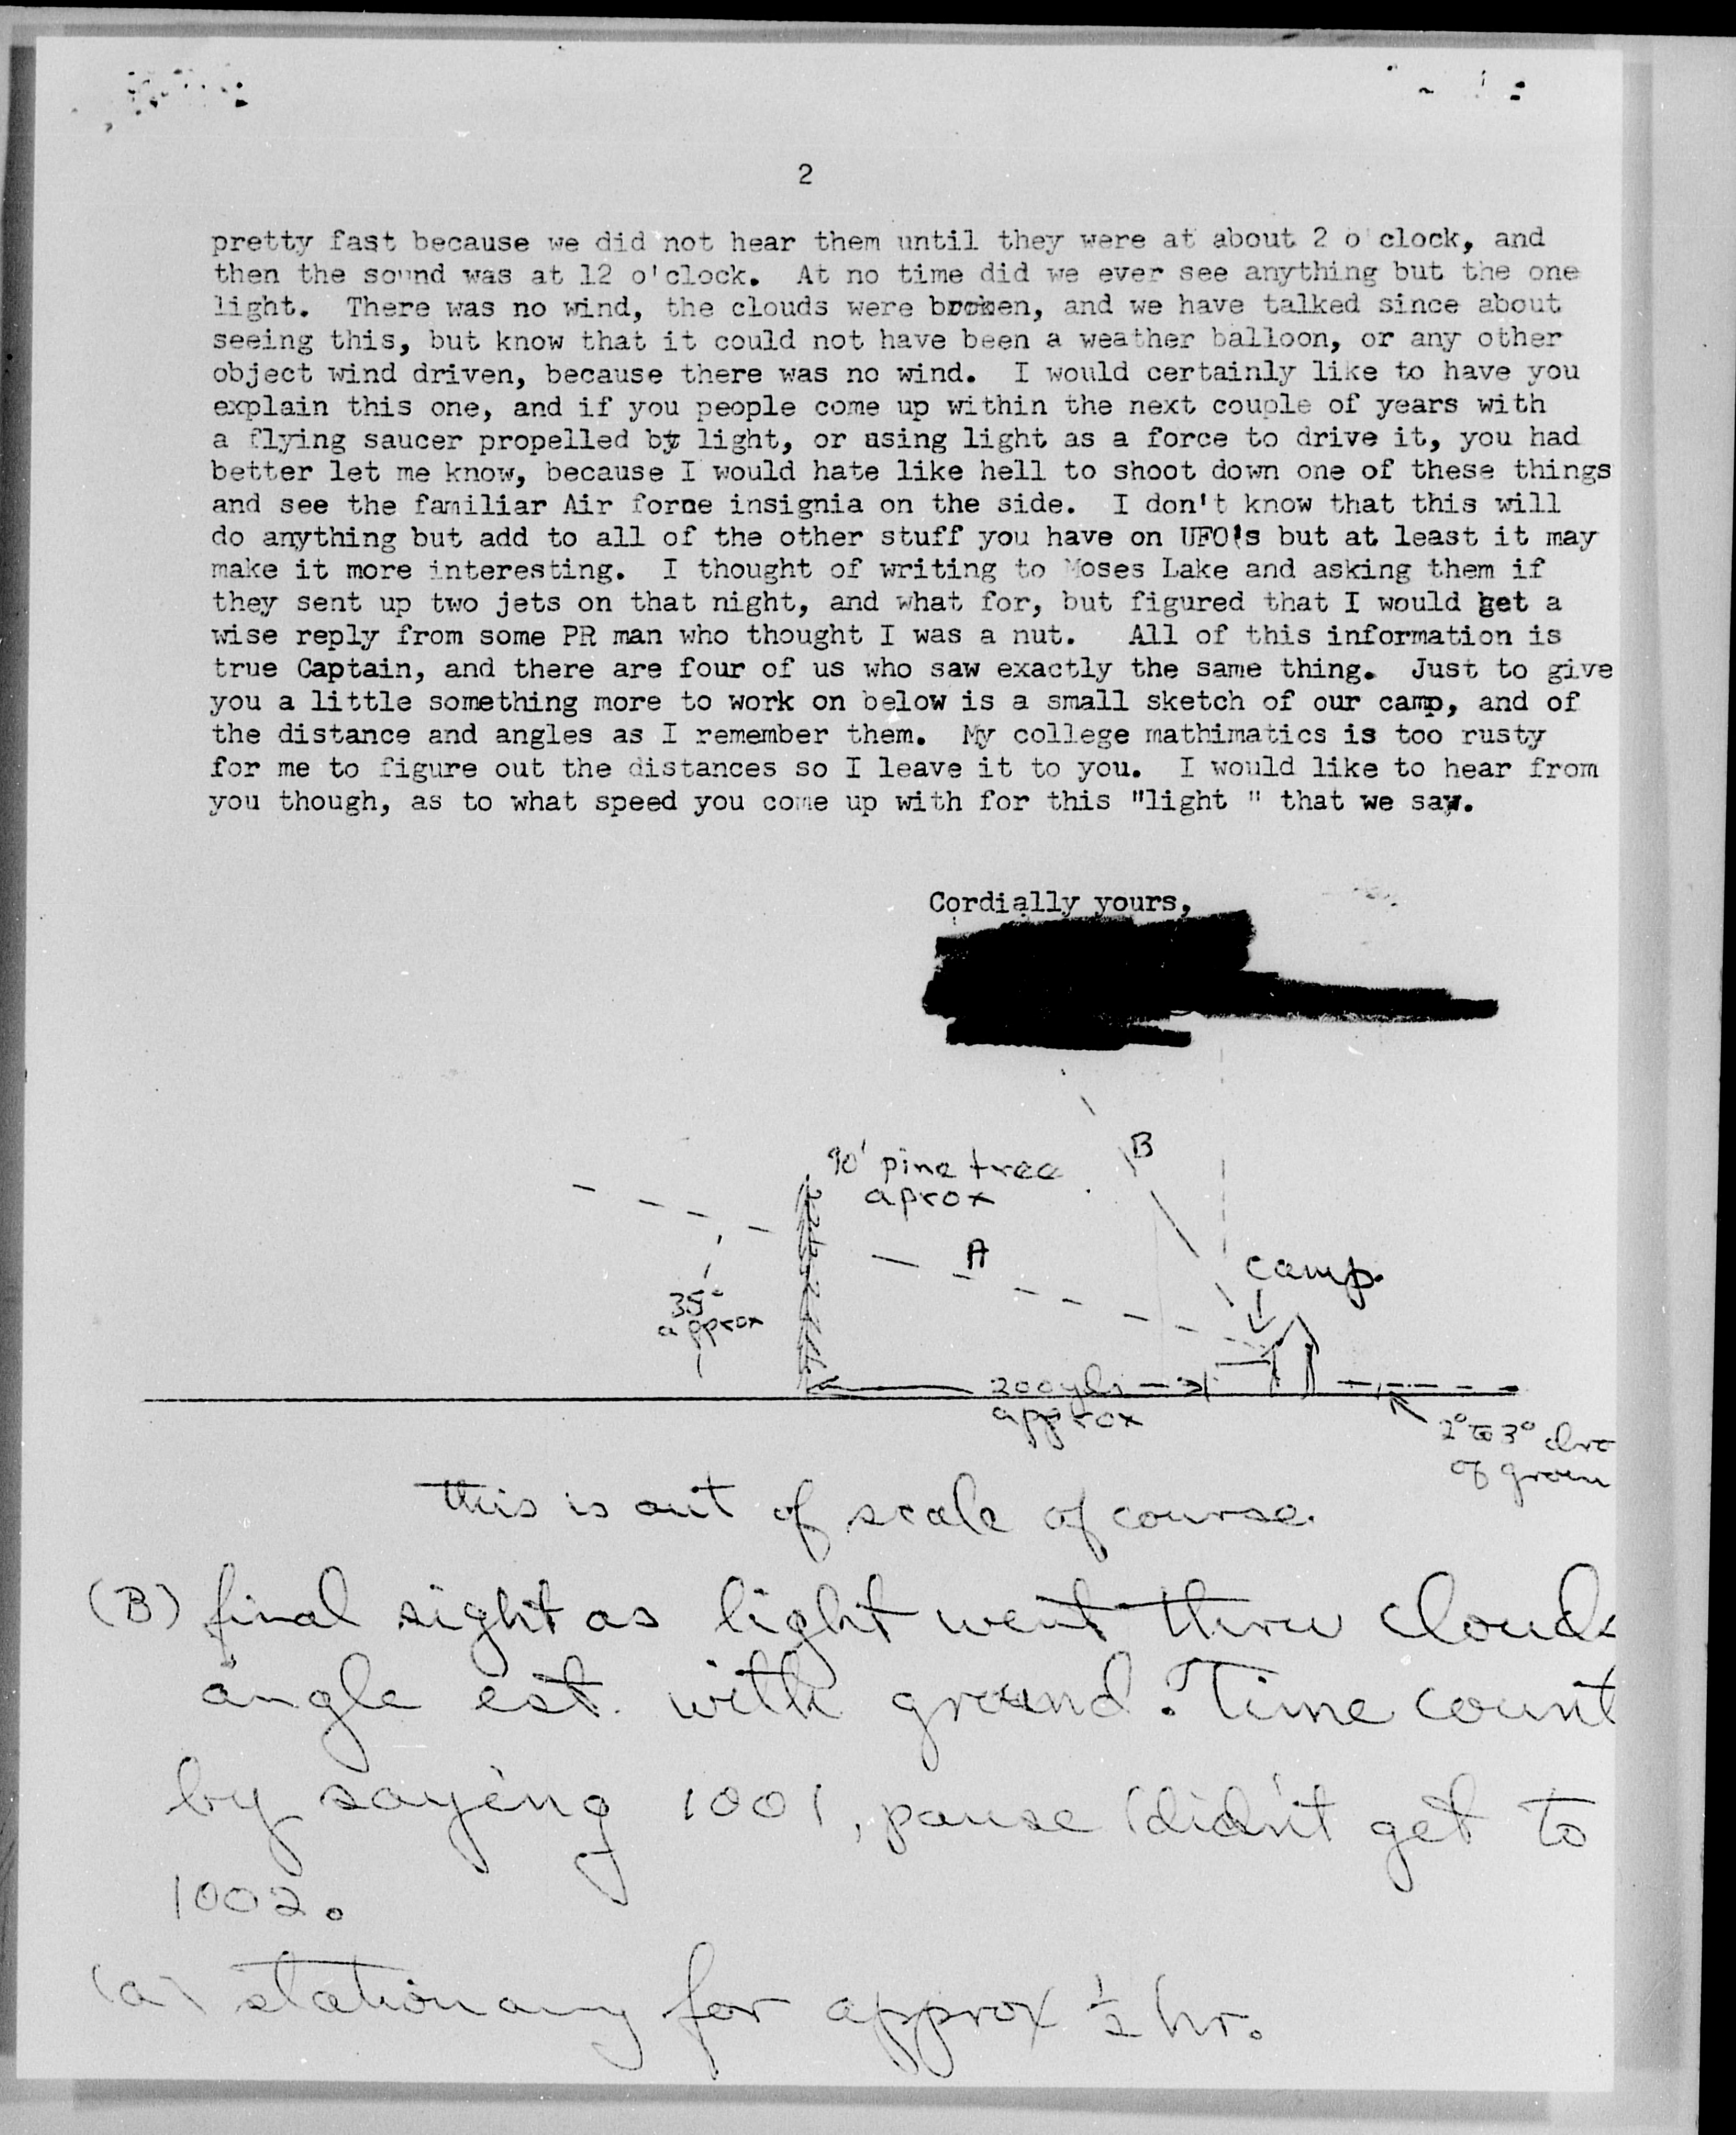 2
pretty fast because we did not hear them until they were at about 2 o'clock, and
then the sound was at 12 o'clock. At no time did we ever see anything but the one
light. There was no wind, the clouds were broken, and we have talked since about
seeing this, but know that it could not have been a weather balloon, or any other
object wind driven, because there was no wind. I would certainly like to have you
explain this one, and if you people come up within the next couple of years with
a flying saucer propelled by light, or using light as a force to drive it, you had
better let me know, because I would hate like hell to shoot down one of these things
and see the familiar Air forne insignia on the side. I don't know that this will
do anything but add to all of the other stuff you have on UFO's but at least it may
make it more interesting. I thought of writing to Moses Lake and asking them if
they sent up two jets on that night, and what for, but figured that I would get a
wise reply from some PR man who thought I was a nut. All of this information is
true Captain, and there are four of us who saw exactly the same thing. Just to give
you a little something more to work on below is a small sketch of our camp, and of
the distance and angles as I remember them. My college mathimatics is too rusty
for me to figure out the distances so I leave it to you. I would like to hear from
you though, as to what speed you come up with for this "light " that we saw.
Cordially yours,
B
90' pine tree
aprox
A
camp.
35°
approx
200 yds
approx
2° to 3°
of
this is out of scale of course.
(B) final sight as light went thru clouds
angle est. with ground. Time count
by saying 1001, pause (didn't get to
1002.
(a) stationary for approx ½ hr.